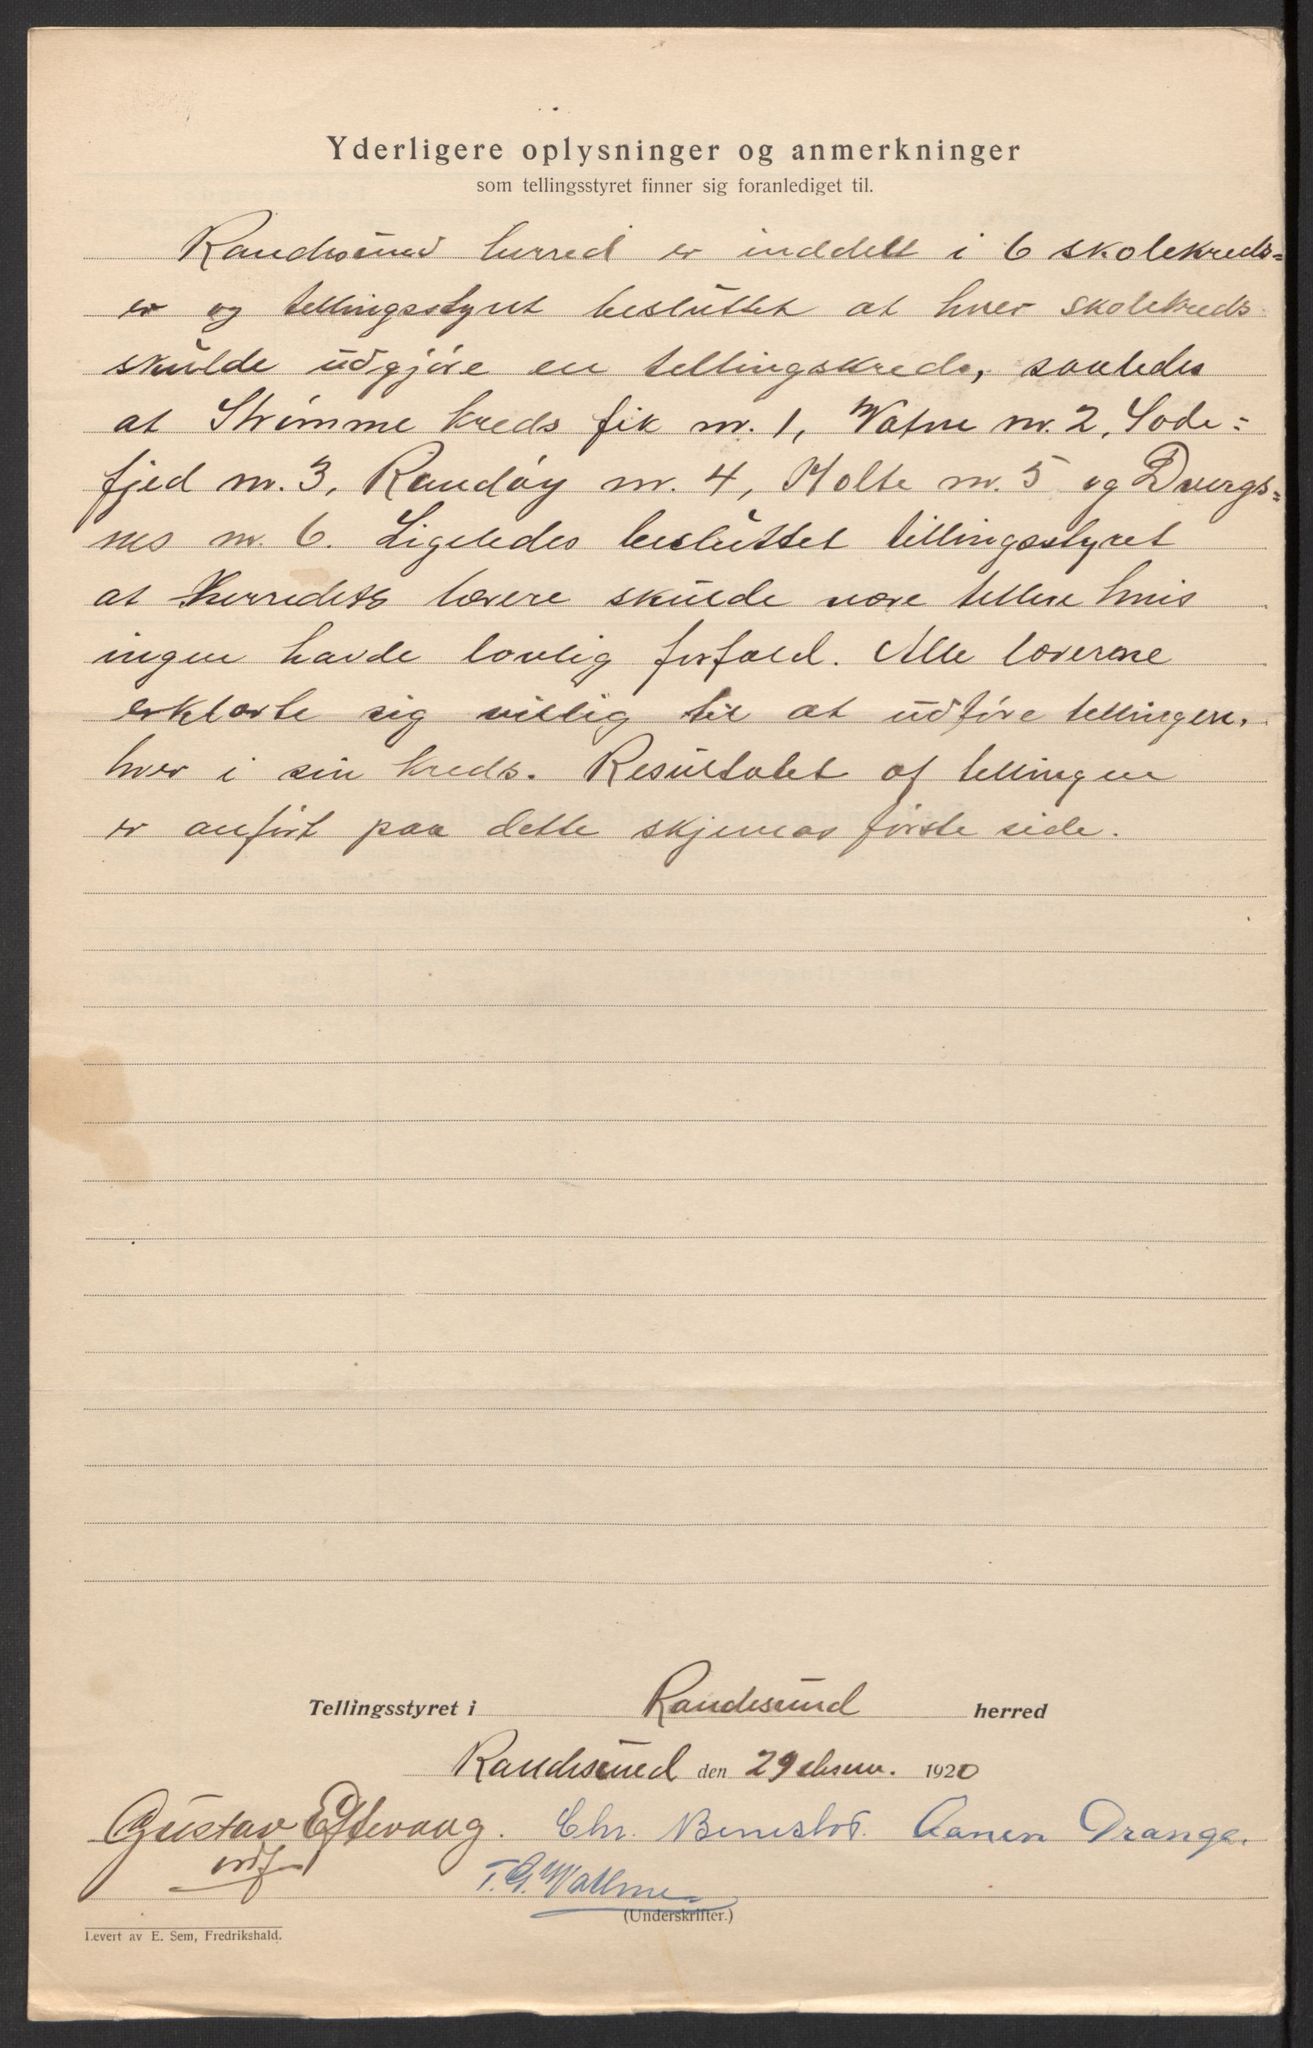 Yderligere oplysninger og anmerkninger
som tellingsstyret finner sig foranlediget til.
Randesund herred er inddelt i 6 skolekreds=
er og tellingsstyret besluttet at hver skolekreds
skulde udgjøre en tellingskreds, saaledes
at Strømme kreds fik nr. 1, Vatne nr. 2, Sode=
fjed nr. 3, Randøy nr. 4, Holte nr. 5 og Dvergs=
nes nr. 6. Ligeledes besluttet tellingsstyret
at herredets lærere skulde være tellere hvis
ingen havde lovlig forfald. Alle lærerne
erklærte sig villig til at udføre tellingen,
hver i sin kreds. Resultatet af tellingen
er anført paa dette skjemas første side.
Tellingsstyret i Randesund herred
Randesund den 29 1920
Gustav Eftevaag. Chr. Aanen Drange.
ordf.
T. G.
(Underskrifter.)
Levert av E. Sem, Fredrikshald.